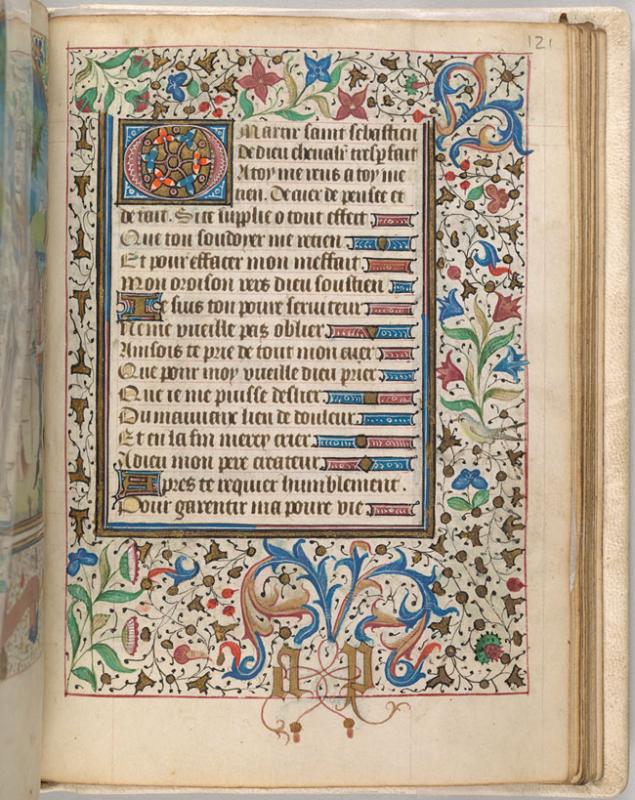 121
O Martir saint sebastien
De dieu chevalr tresp fait
A toy me rens a toy me
tien. De cuer de pensee et
de fait. Si te supplie o tout effect
Que ton souldoyer me retien
Et pour effacer mon meffait
Mon oroison vers dieu soustien
Je suis ton poure serviteur
Ne me vueille pas oblier
Ainsois te prie de tout mon cuer
Que pour moy vueille dieu prier
Que ie me puisse deslier
Du mauvaix lien de douleur
Et en la fin mercy crier
A dieu mon pere createur
Apres te requier humblement.
Pour garentir ma poure vie
a p